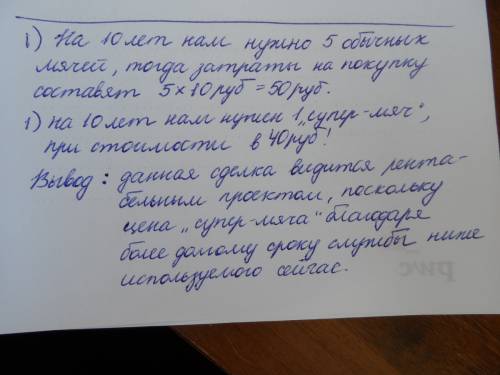 1) На 10 лет нам нужно 5 обычных
мячей, тогда затраты на покупку
составят 5×10 руб = 50 руб.
1) на 10 лет нам нужен 1 „супер-мяч“,
при стоимости в 40 руб!
Вывод: данная сделка видится рента-
бельным проектом, поскольку
цена „супер-мяча“ благодаря
более долгому сроку службы ниже
используемого сейчас.